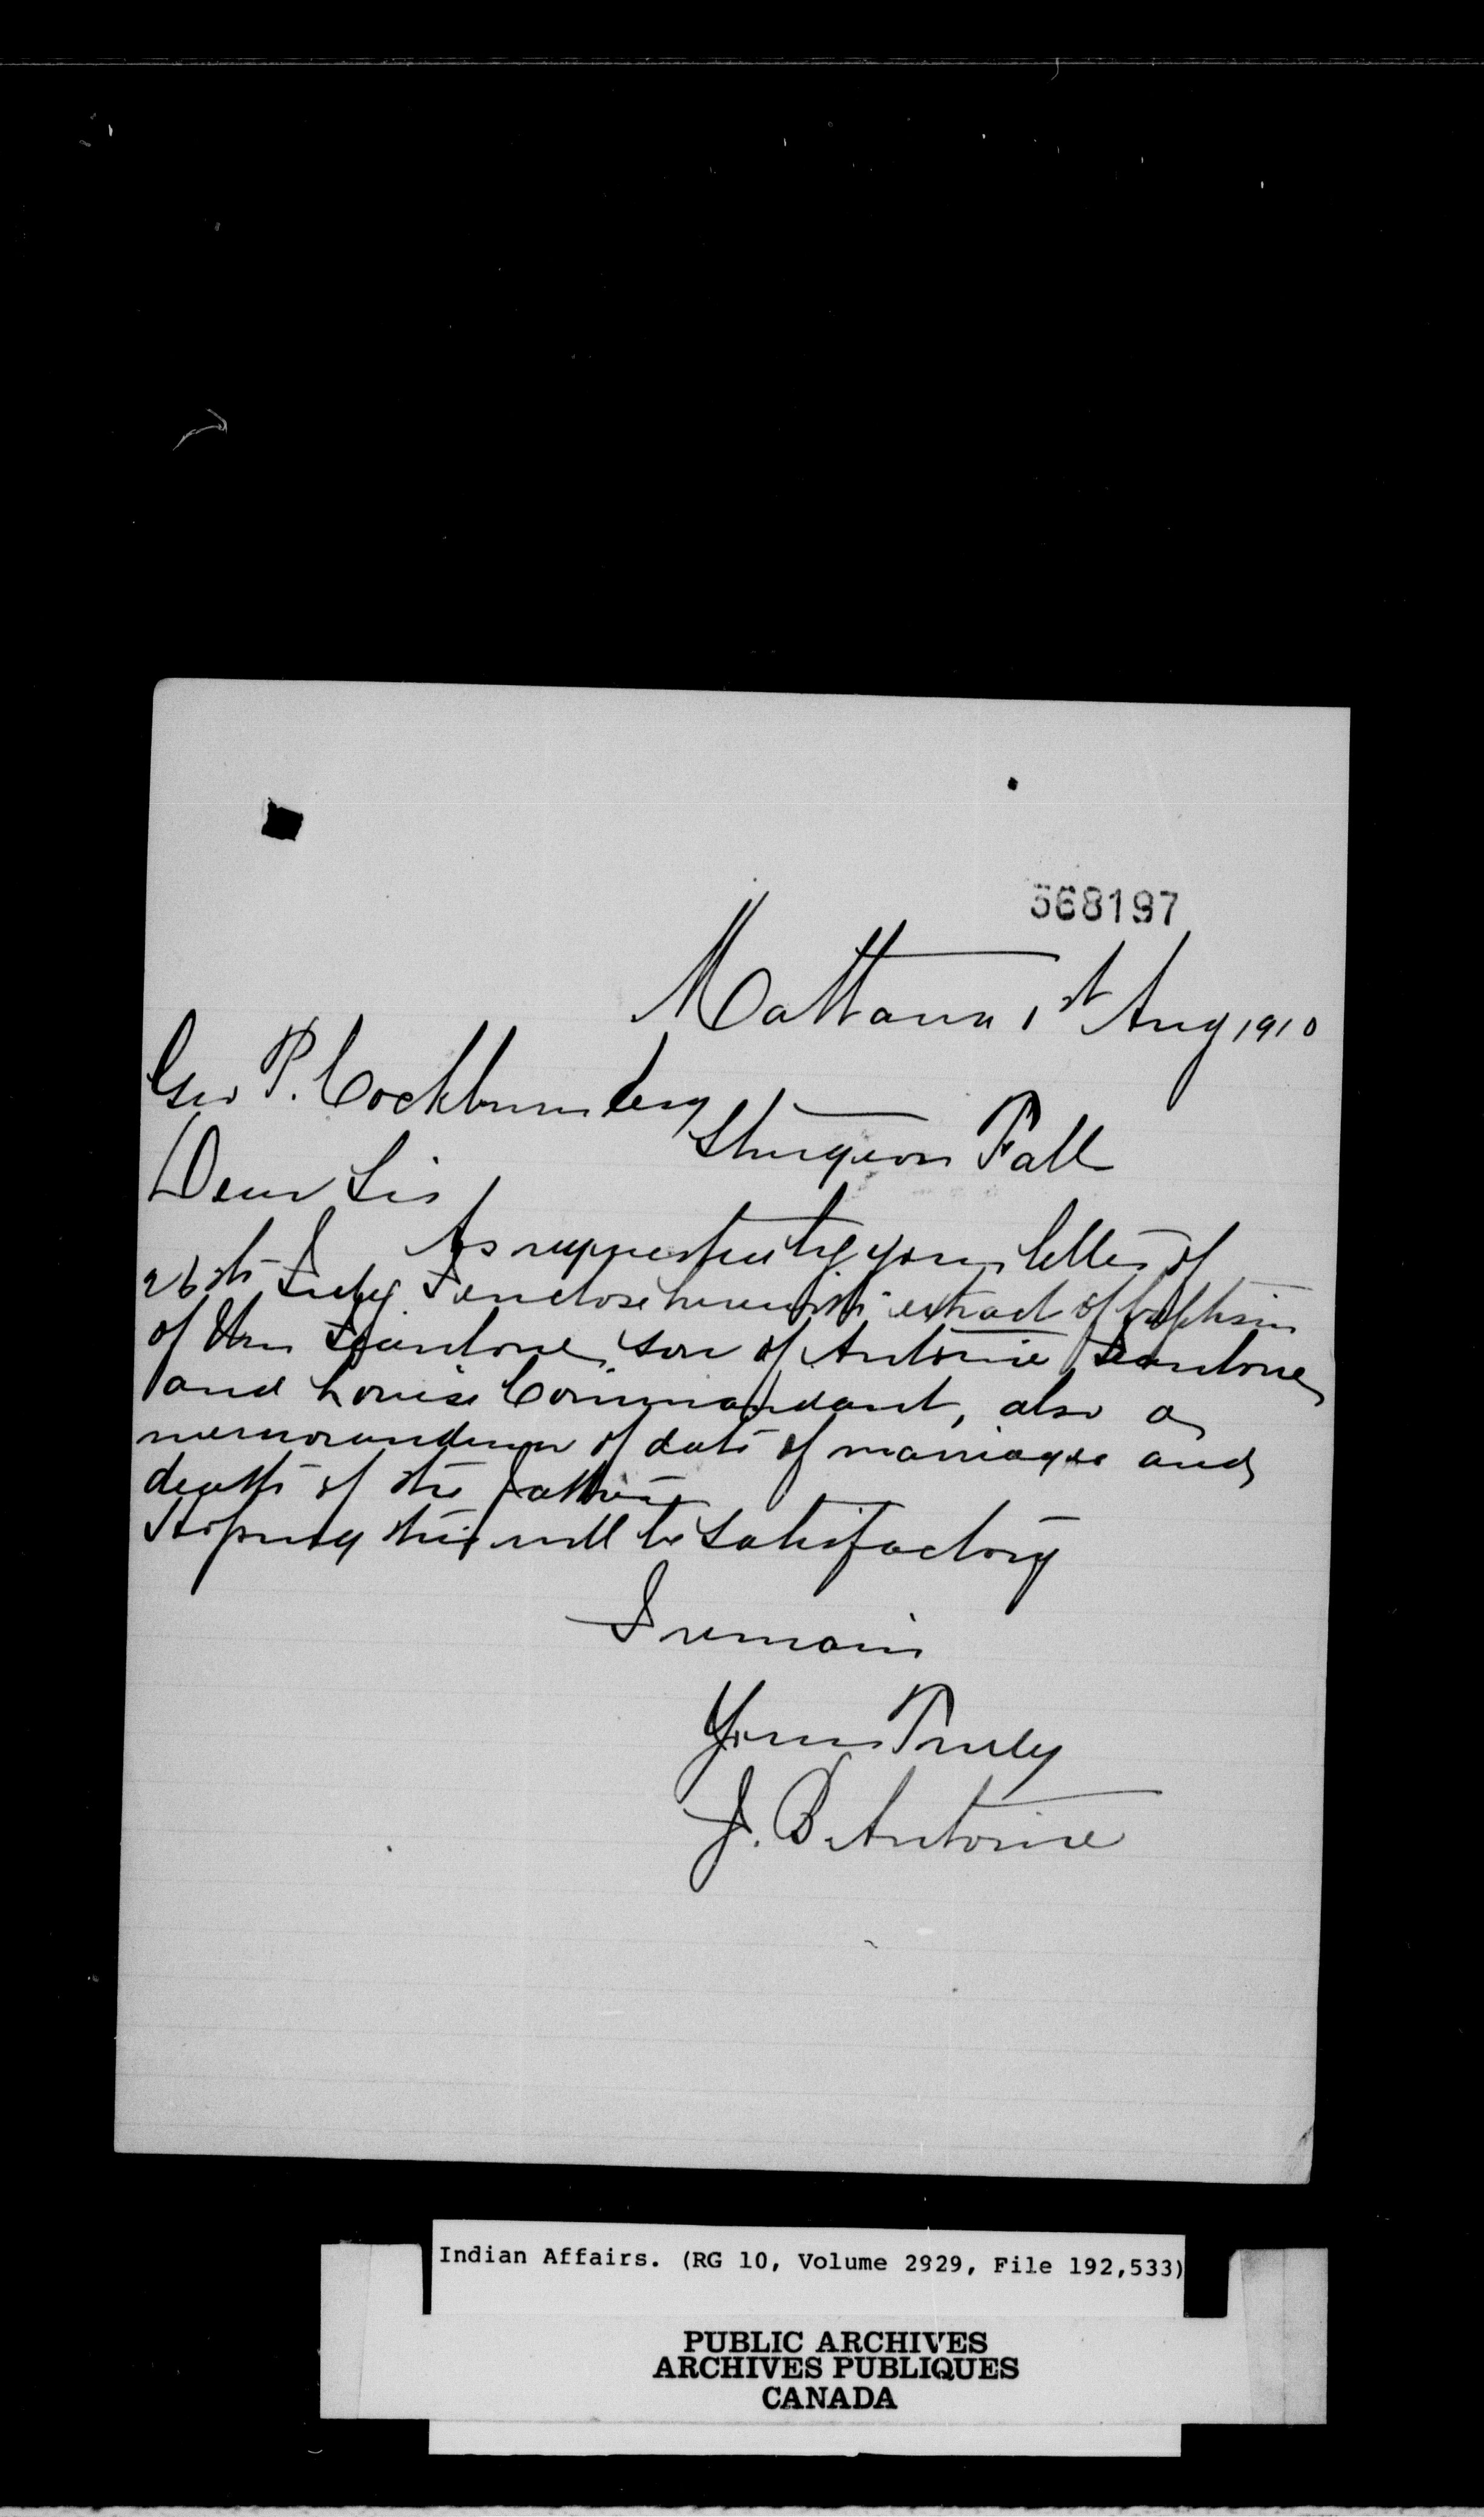 568197
Mattawa 1st Aug 1910
Geo P. Cockburn Esq
Sturgeon Fall
Dear Sir
As requested by your letter of
26th July I enclose herewith extract of baptism
of Wm son of Antoine
and Louise Commandant, also a
memorandum of date of marriage and
death of the father
Hoping this will be satisfactory
I remain
Yours Truly
J. B. Antoine
Indian Affairs. (RG 10, Volume 2929, File 192,533)
PUBLIC ARCHIVES
ARCHIVES PUBLIQUES
CANADA